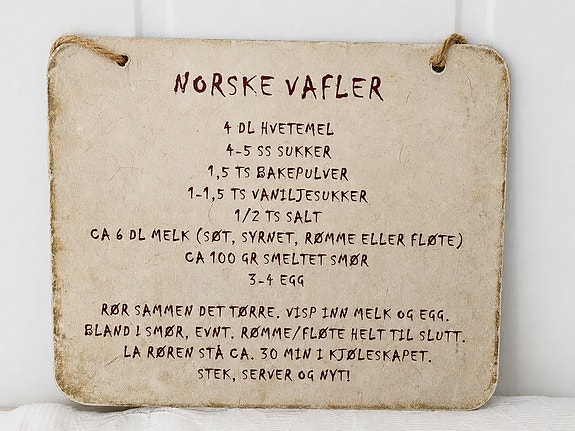 NORSKE VAFLER
4 DL HVETEMEL
4-5 SS SUKKER
1,5 TS BAKEPULVER
1-1,5 TS VANILJESUKKER
1/2 TS SALT
CA 6 DL MELK (SØT, SYRNET, RØMME ELLER FLØTE)
CA 100 GR SMELTET SMØR
3-4 EGG
RØR SAMMEN DET TØRRE. VISP INN MELK OG EGG.
BLAND I SMØR, EVNT. RØMME/FLØTE HELT TIL SLUTT.
LA RØREN STÅ CA. 30 MIN I KJØLESKAPET.
STEK, SERVER OG NYT!